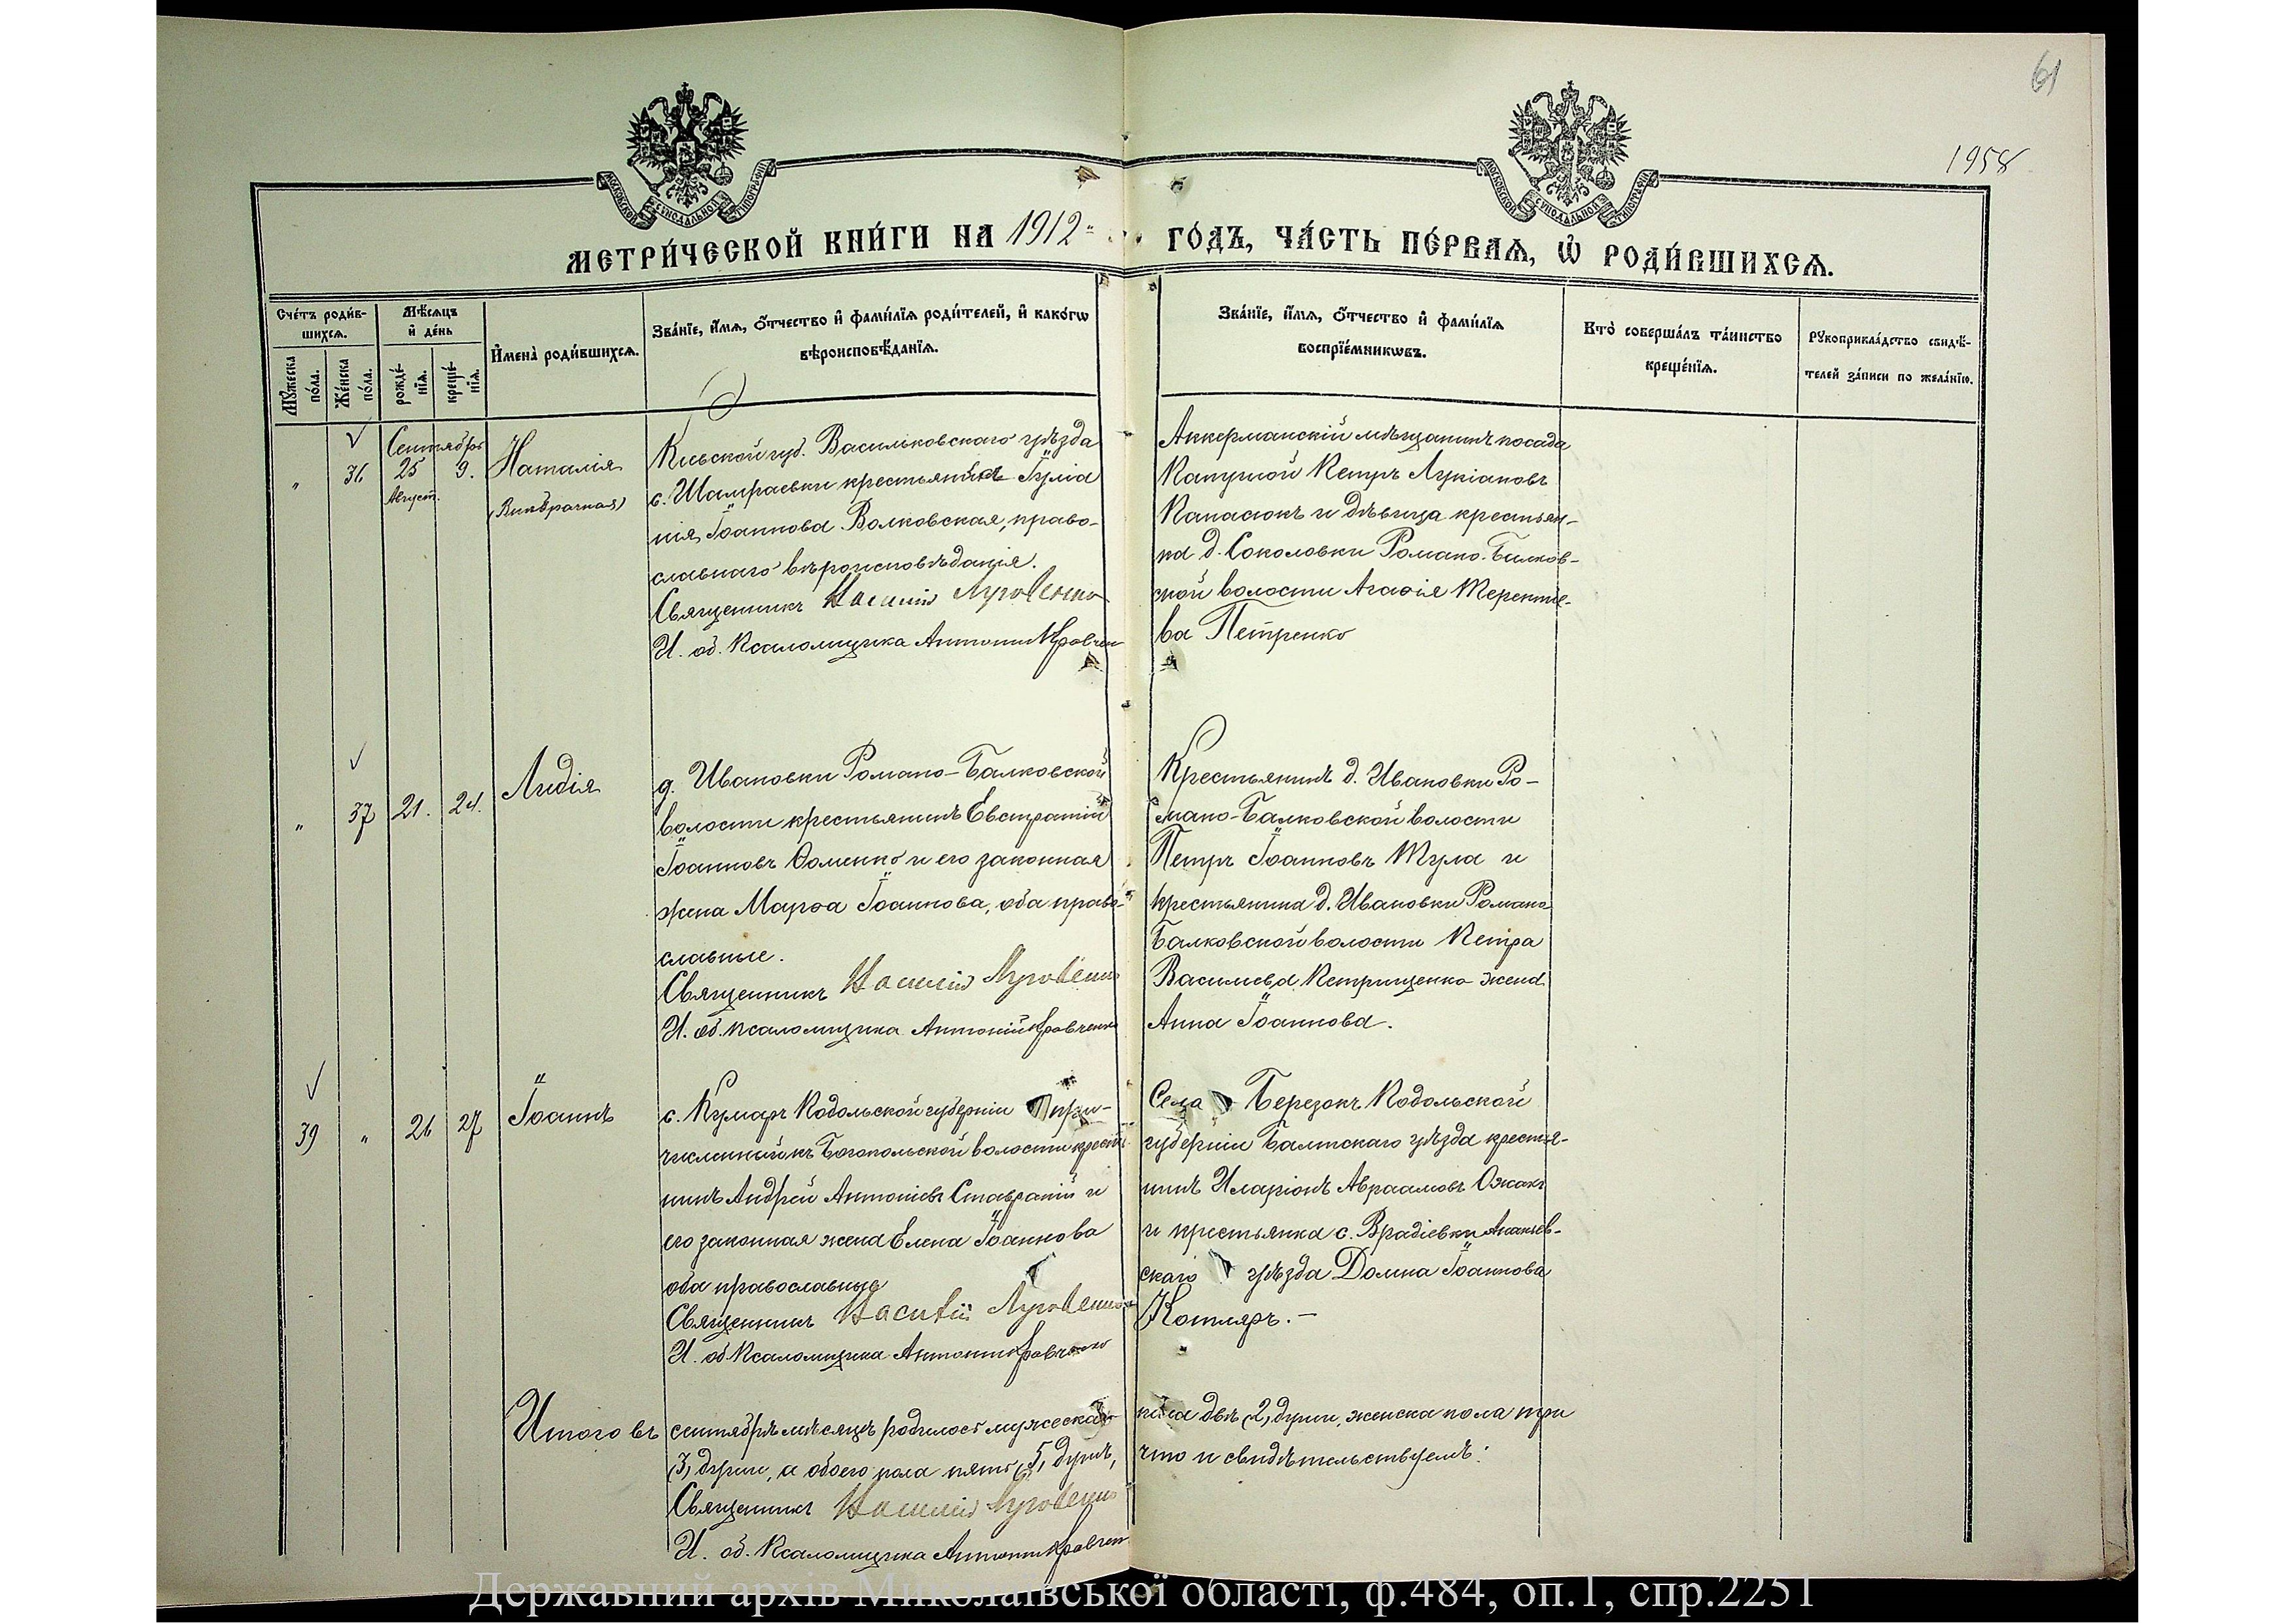 61
1958
МОСКОВСКОЙ СѴНОДАЛЬНОЙ ТИПОГРАФІИ
МОСКОВСКОЙ СѴНОДАЛЬНОЙ ТИПОГРАФІИ
МЕТРИ́ЧЕСКОЙ КНИ́ГИ НА 1912 ГО́ДЪ, ЧА́СТЬ ПЕ́РВАѦ, Ѡ҆ РОДИ́ВШИХСѦ.
Сче́тъ роди́в-
шихсѧ.
Мѣ́сѧцъ
и҆ де́нь
Мꙋ́жеска
по́ла.
Же́нска
по́ла.
рожде́-
нїѧ.
креще́-
нїѧ.
И҆мена̀ роди́вшихсѧ.
Зва́нїе, и҆́мѧ, ѻ҆́тчество и҆ фами́лїѧ роди́телей, и҆ како́гѡ
вѣроисповѣ́данїѧ.
Зва́нїе, и҆́мѧ, ѻ҆́тчество и҆ фами́лїѧ
воспрїе́мникѡвъ.
Кто̀ соверша́лъ та́инство
креще́нїѧ.
Рꙋкоприкла́дство свидѣ́-
телей за́писи по жела́нїю.
Сентябрь
"
36
25
9.
Август.
Наталія
(Внѣбрачная)
Кіевской губ. Васильковскаго уѣзда
с. Шамраевки крестьянка Гулiа
нія Іоаннова Волковская, право-
славнаго вѣроисповѣданія.
Священникъ Василій Луговенко
И. об. Псаломщика Антоній Кравчен
Аккерманскій мѣщанинъ посада
Петръ Лукіановъ
Панасюкъ и дѣвица крестьян-
ка д. Соколовки Романо-Балков-
ской волости Агафія Терентье-
ва Петренко
"
37
21.
24.
Лидія
д. Ивановки Романо-Балковской
волости крестьянинъ Евстратій
Іоанновъ Ѳоменко и его законная
жена Марѳа Іоаннова, оба право-
славные.
Священникъ Василій Луговенко
И. об. псаломщика Антоній Кравченко
Крестьянинъ д. Ивановки Ро-
мано-Балковской волости
Петръ Іоанновъ Тула и
крестьянина д. Ивановки Романо
Балковской волости Петра
Васильева Петрищенко жена
Анна Іоаннова.
39
"
26
27
Іоаннъ
с. Кумаръ Подольской губерніи при-
численный къ Богопольской волости крестья
нинъ Андрей Антоніевъ Ставратій и
его законная жена Елена Іоаннова
оба православные
Священникъ Василій Луговенко
И. об. Псаломщика Антоній Кравченко
Села Березокъ Подольской
губерніи Балтскаго уѣзда крестья-
нинъ Иларіонъ Авраамовъ Ожакъ
и крестьянка с. Врадіевки Ананьев-
скаго уѣзда Домна Іоаннова
Котляръ. -
Итого въ сентябрѣ мѣсяцѣ родилось мужеска пола двѣ (2) души, женска пола три
(3) души, а обоего пола пять (5) душъ, что и свидѣтельствуемъ:
Священникъ Василій Луговенко
И. об. Псаломщика Антоній Кравчен
Державний архів Миколаївської області, ф.484, оп.1, спр.2251